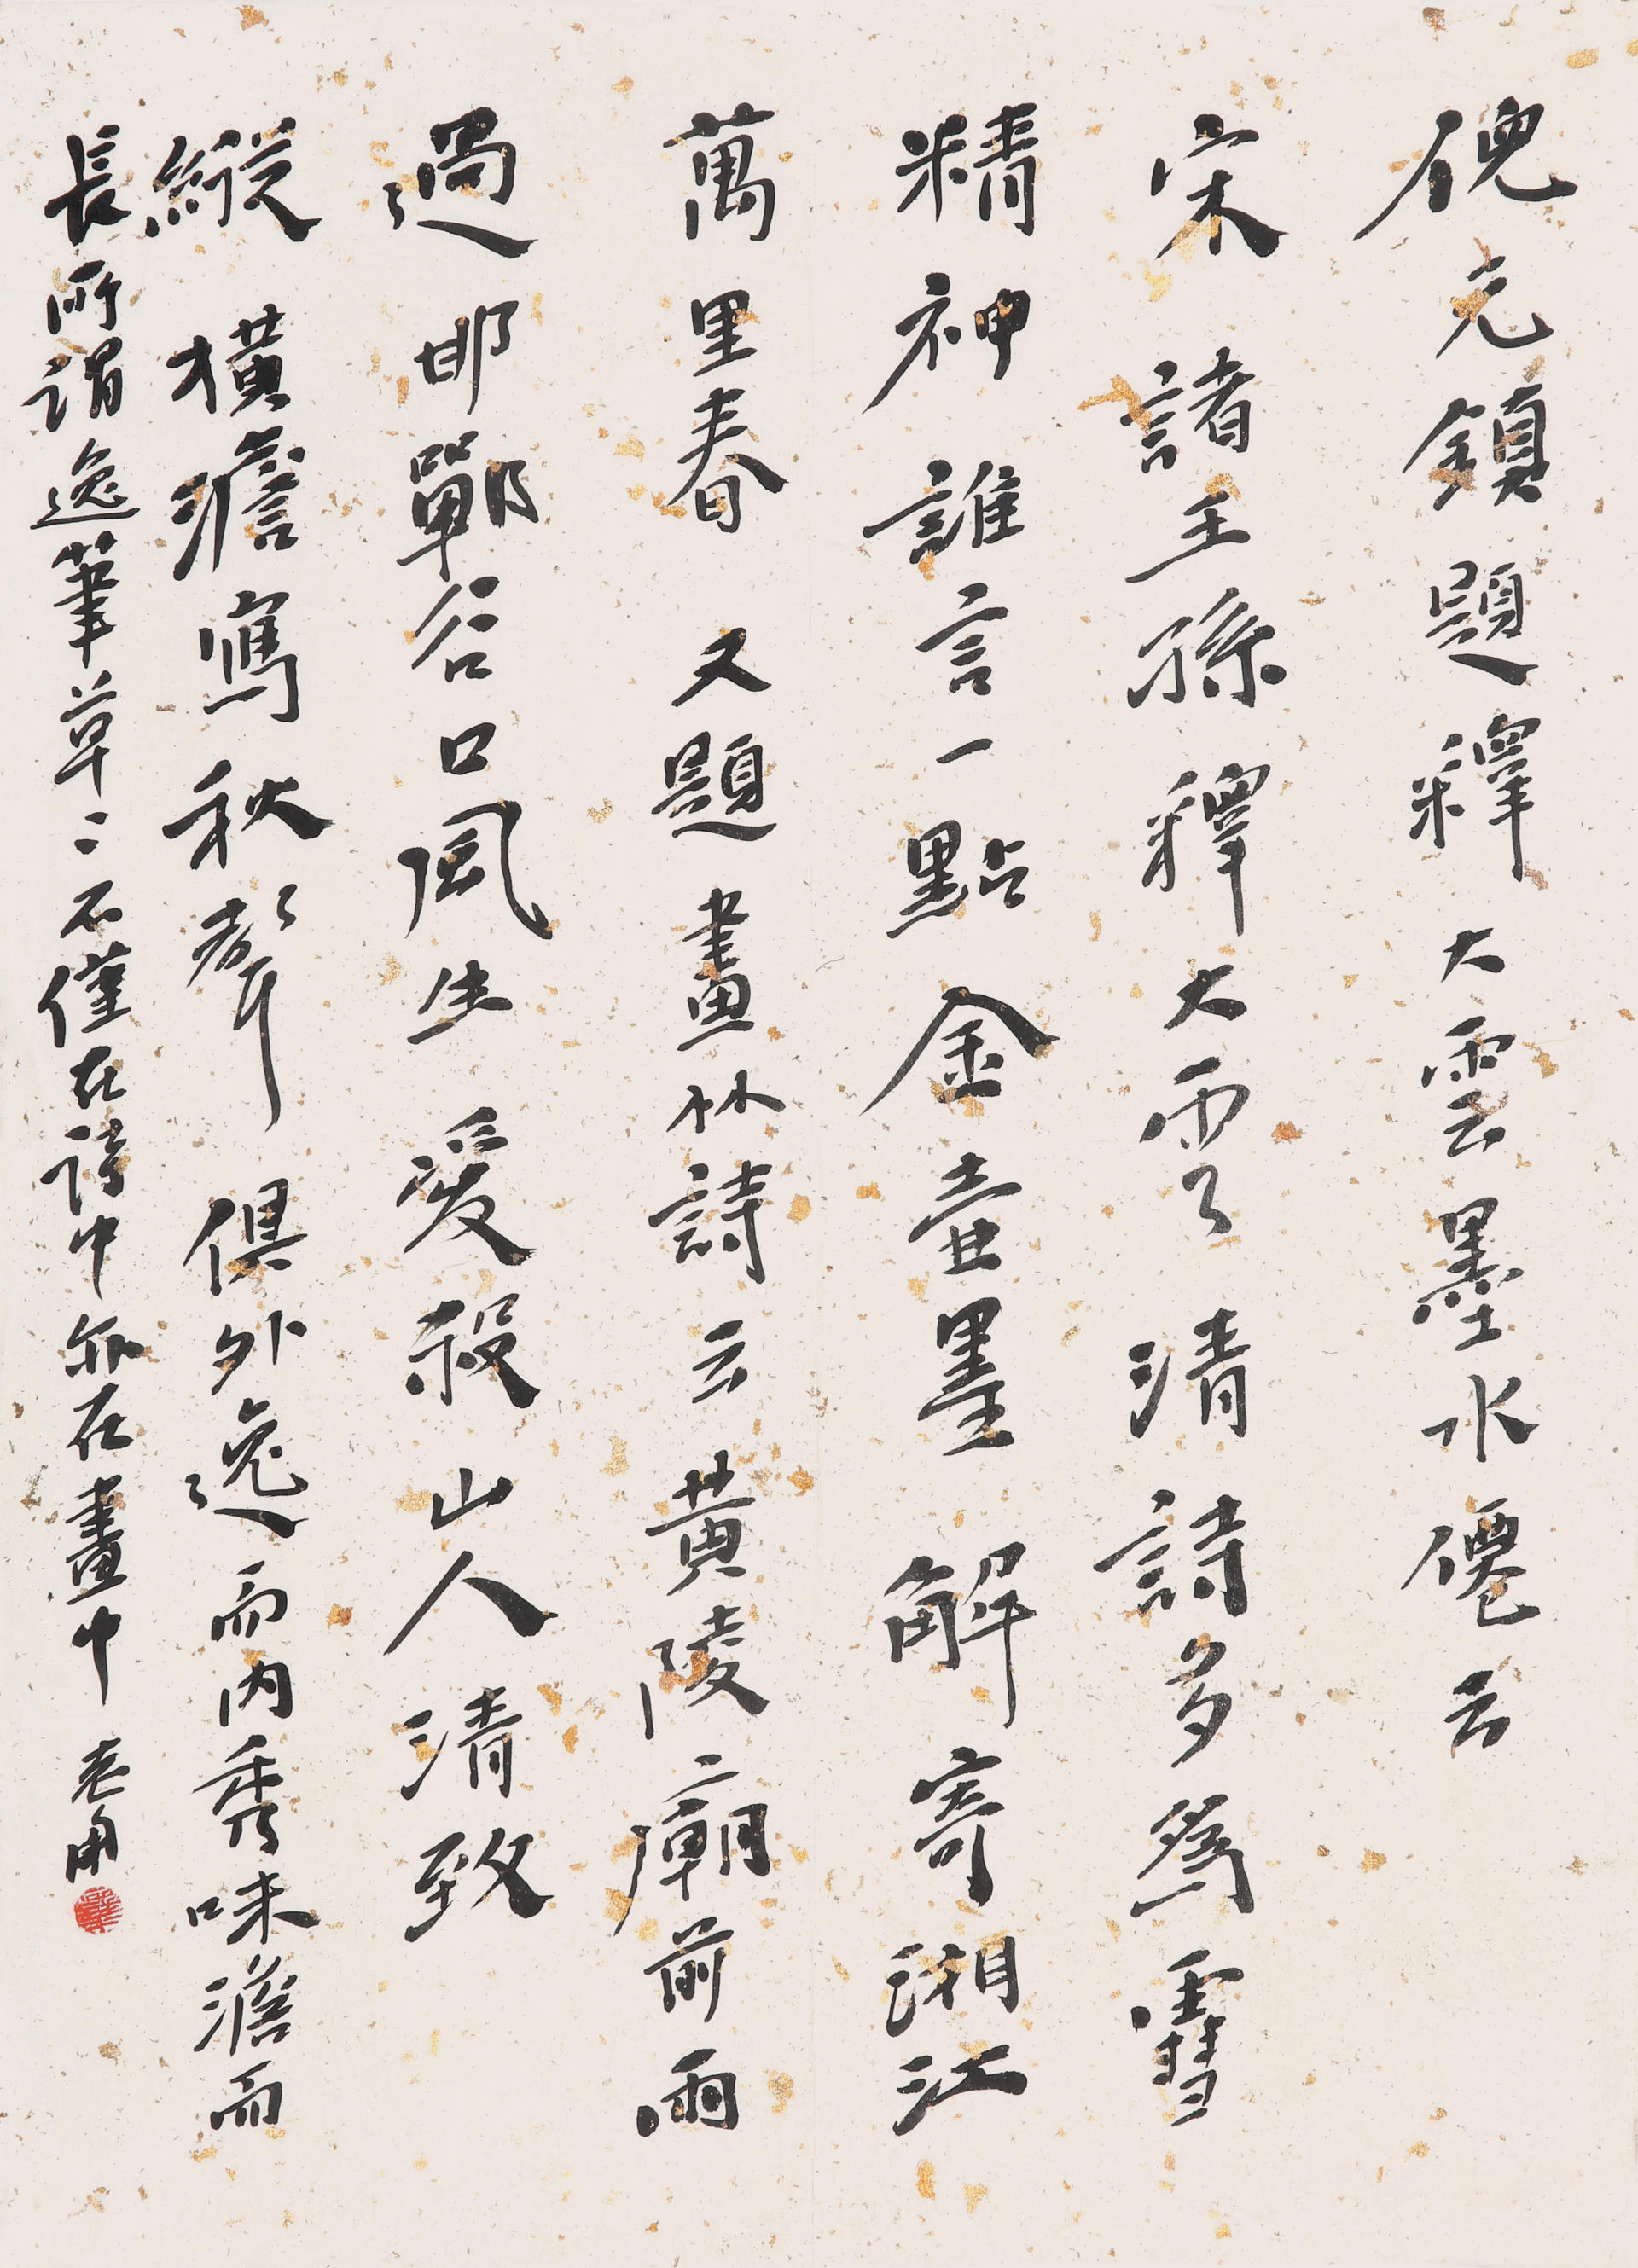 倪元鎮題釋大雲墨水僊云
宋諸王孫釋大雲清詩多爲雪
精神誰言一點金壺墨解寄湘江
萬里春又題畫竹詩云黃陵廟前雨
過邯鄲谷口風生愛殺山人清致
縱橫澹寫秋聲俱外逸而內秀味澹而
長所謂逸筆草〻不僅在詩中亦在畫中老